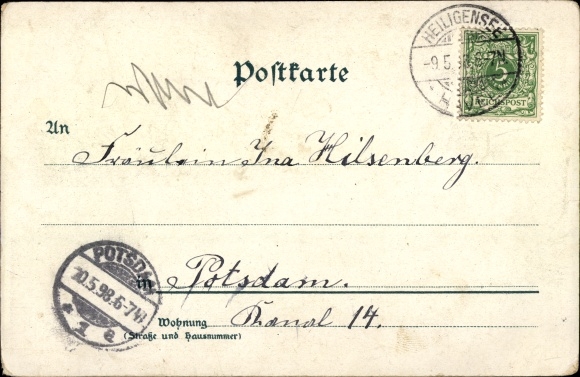 HEILIGENSEE
-9.5.98.6-7N
Postkarte
5
REICHSPOST
An
Fräulein Ina Hilsenberg.
POTSDAM
10.5.98.6-7V
* 1 e
in Potsdam.
Wohnung Kanal 14.
(Straße und Hausnummer)